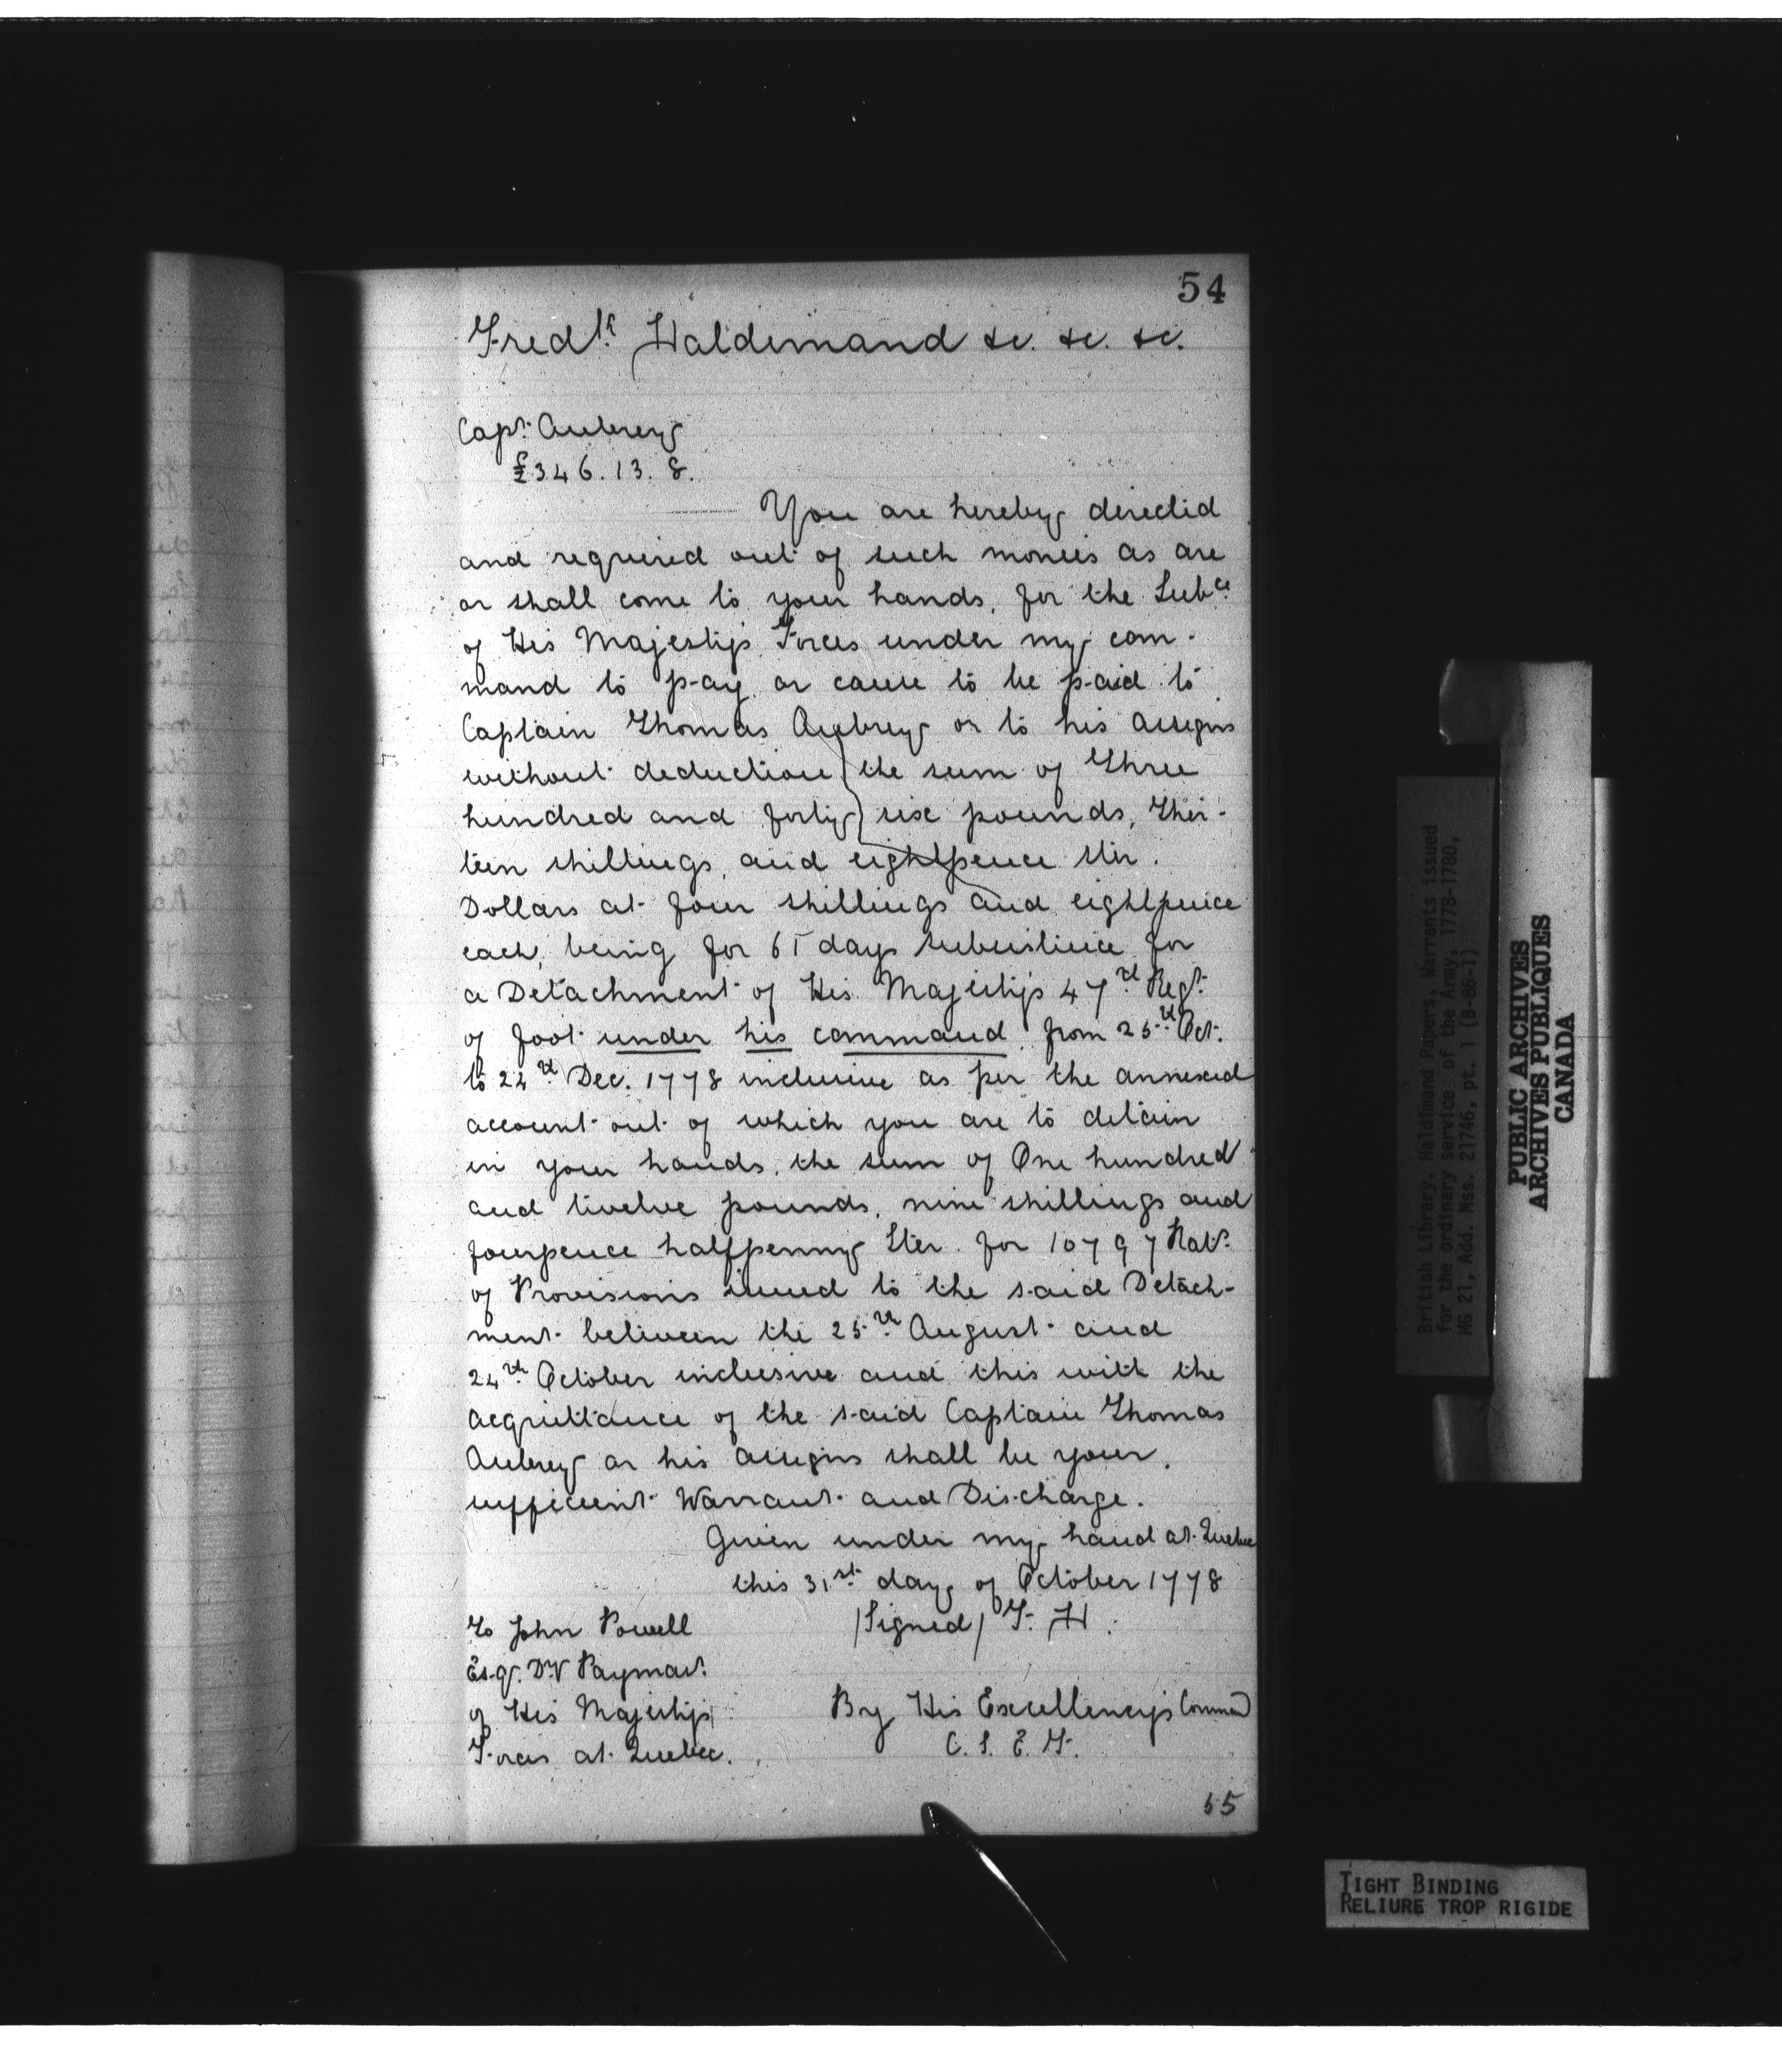 54
Fredk. Haldimand &c. &c. &c.
Capt. Aubrey
£346. 13. 8.
You are hereby directed
and required out of such monies as are
or shall come to your hands, for the Subce.
of His Majesty's Forces under my com-
mand to pay or cause to be paid to
Captain Thomas Aubrey or to his assigns
without deduction the sum of Three
hundred and forty six pounds, Thir-
teen shillings, and eightpence Str.
Dollars at four shillings and eightpence
each, being for 61 days subsistence for
a Detachment of His Majesty's 47th Regt.
of foot under his command, from 25th Oct.
to 24th Dec. 1778 inclusive as per the annexed
account out of which you are to detain
in your hands, the sum of One hundred
and twelve pounds, nine shillings and
fourpence halfpenny Ster. for 10797 Rats.
of Provisions issued to the said Detach-
ment between the 25th August and
24th October inclusive and this with the
acquittance of the said Captain Thomas
Aubrey or his assigns shall be your
sufficient Warrant and Discharge.
Given under my hand at Quebec
this 31st day of October 1778
/Signed/ F. H.
To John Powell
Esqr. Dy Paymast.
of His Majesty's
Forces at Quebec.
By His Excellency's Command
55
British Library, Haldimand Papers, Warrants issued
for the ordinary service of the Army, 1778-1780,
MG 21, Add. Mss. 21746, pt. 1 (B-86-1)
PUBLIC ARCHIVES
ARCHIVES PUBLIQUES
CANADA
TIGHT BINDING
RELIURE TROP RIGIDE